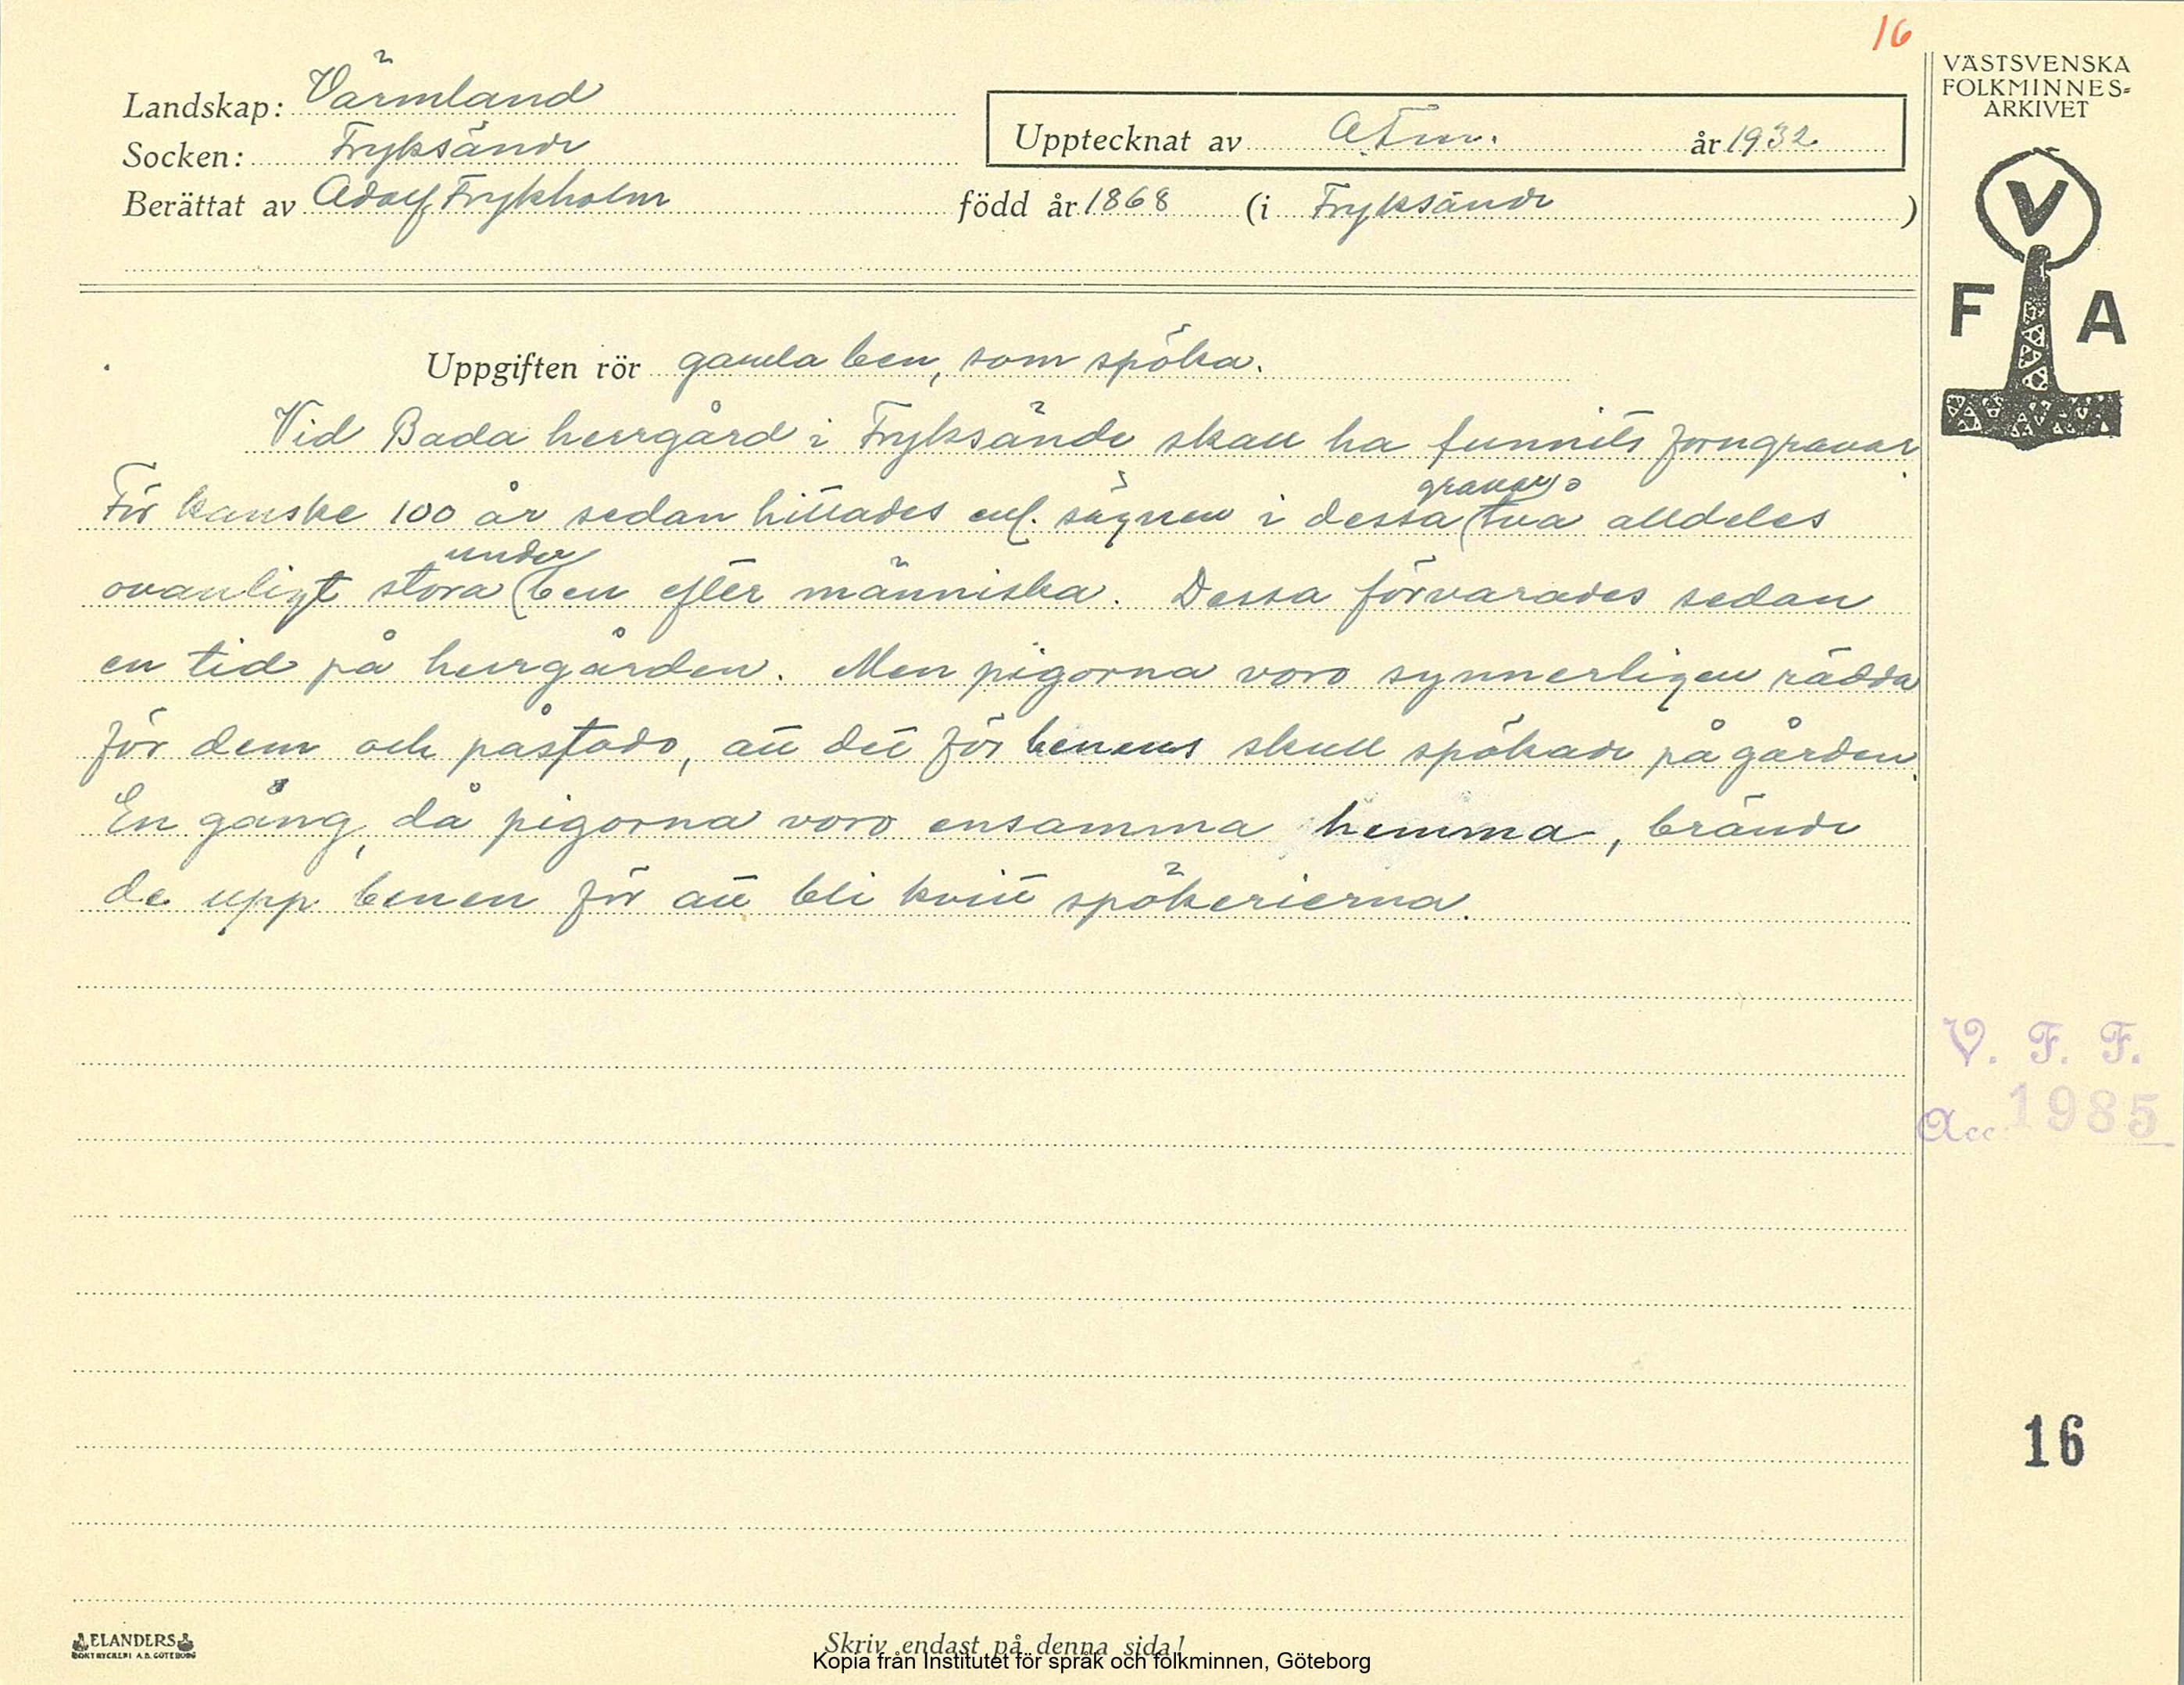 16
VÄSTSVENSKA
FOLKMINNES=
ARKIVET
Landskap: Värmland
Socken: Fryksände
Upptecknat av år 1932
Berättat av Adolf Frykholm född år 1868 (i Fryksände )
V
F A
Uppgiften rör gamla ben, som spöka.
Vid Bada herrgård i Fryksände skall ha funnits forngravar.
För kanske 100 år sedan hittades enl. sägnen i dessa gravar två alldeles
ovanligt stora underben efter människa. Dessa förvarades sedan
en tid på herrgården. Men pigorna voro synnerligen rädda
för dem och påstodo, att det för benens skull spökade på gården.
En gång, då pigorna voro ensamma hemma, brände
de upp benen för att bli kvitt spökerierna.
V. F. F.
Acc 1985
16
ELANDERS
BOKTRYCKERI A.B. GÖTEBORG
Skriv endast på denna sida!
Kopia från Institutet för språk och folkminnen, Göteborg